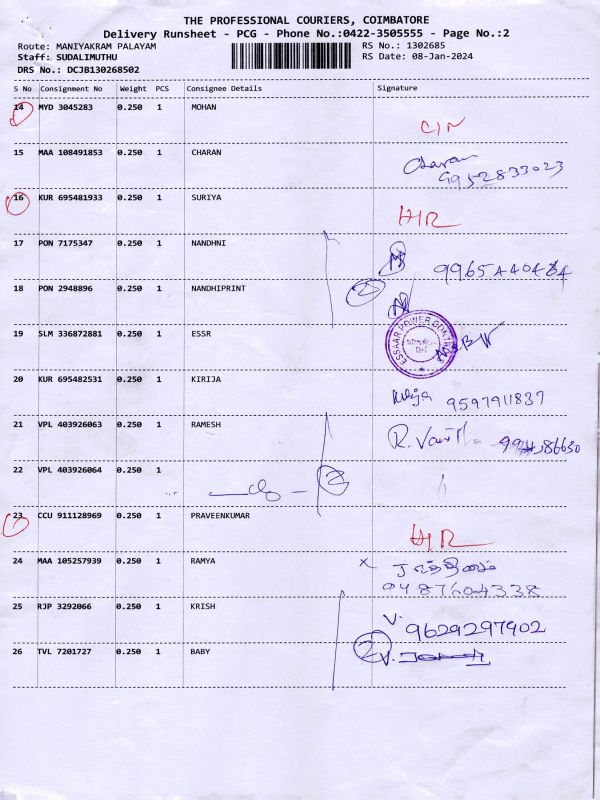 THE PROFESSIONAL COURIERS, COIMBATORE
Delivery Runsheet - PCG - Phone No.:0422-3505555 - Page No.:2
Route: MANIYAKRAM PALAYAM
RS No.: 1302685
Staff: SUDALIMUTHU
RS Date: 08-Jan-2024
DRS No.: DCJB130268502
S No Consignment No Weight PCS Consignee Details Signature
14 MYD 3045283 0.250 1 MOHAN
15 MAA 108491853 0.250 1 CHARAN Charan
9952833023
16 KUR 695481933 0.250 1 SURIYA
17 PON 7175347 0.250 1 NANDHNI
18 PON 2948896 0.250 1 NANDHIPRINT 2
19 SLM 336872881 0.250 1 ESSR
ESSAAR POWER
20 KUR 695482531 0.250 1 KIRIJA
9597911837
21 VPL 403926063 0.250 1 RAMESH
22 VPL 403926064 0.250 1 2
23 CCU 911128969 0.250 1 PRAVEENKUMAR
24 MAA 105257939 0.250 1 RAMYA x
9487604338
25 RJP 3292066 0.250 1 KRISH V.
9629297902
26 TVL 7201727 0.250 1 BABY 2